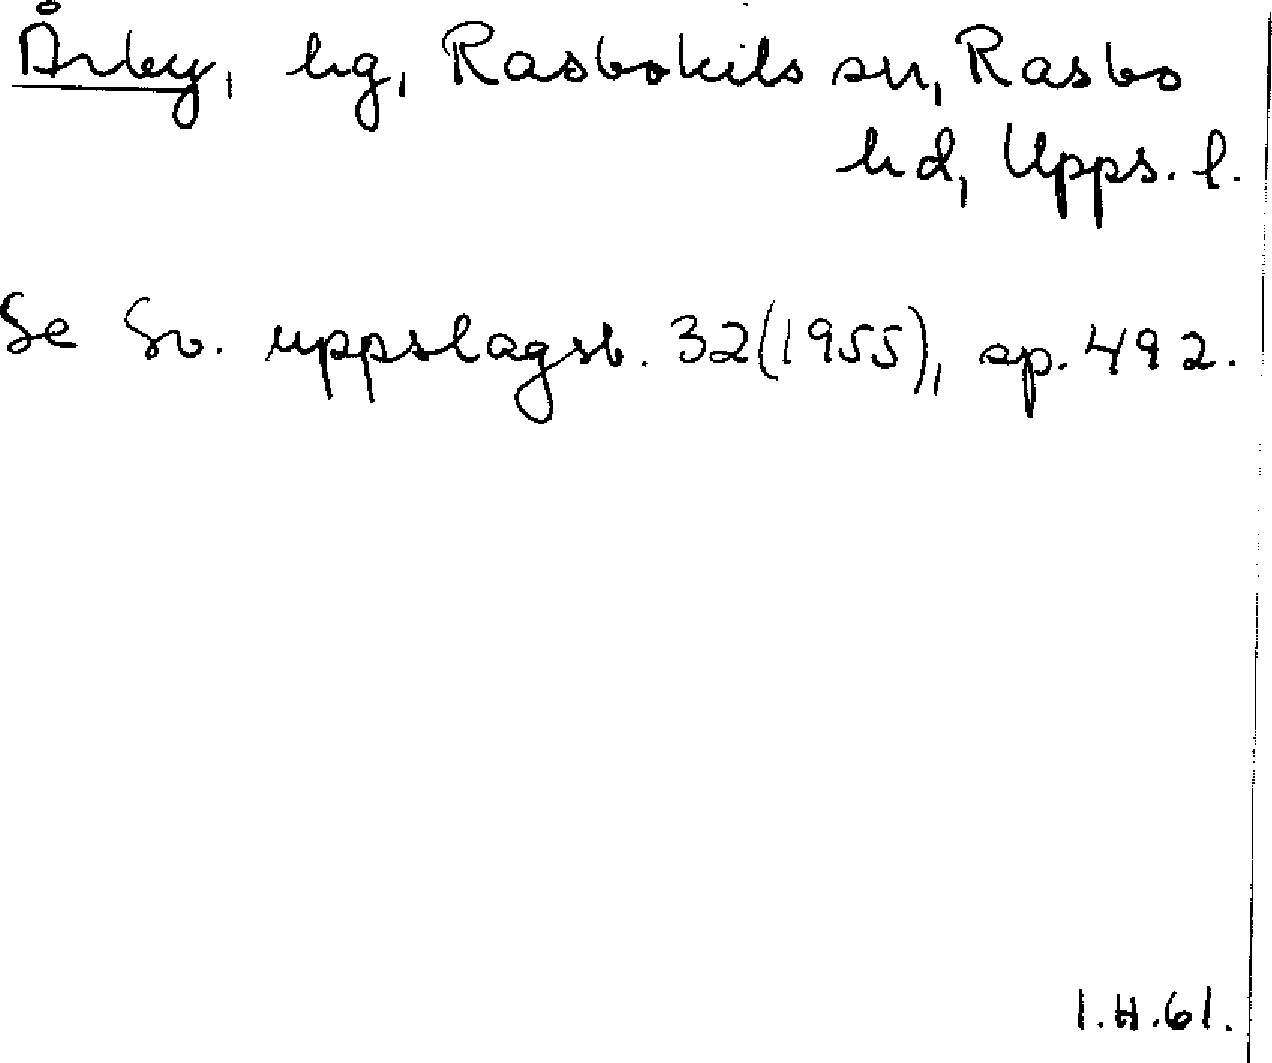 Årby, hg, Rasbokils sn, Rasbo
hd, Upps. l.
Se Sv. uppslagsb. 32(1955), sp. 492.
I.H.61.